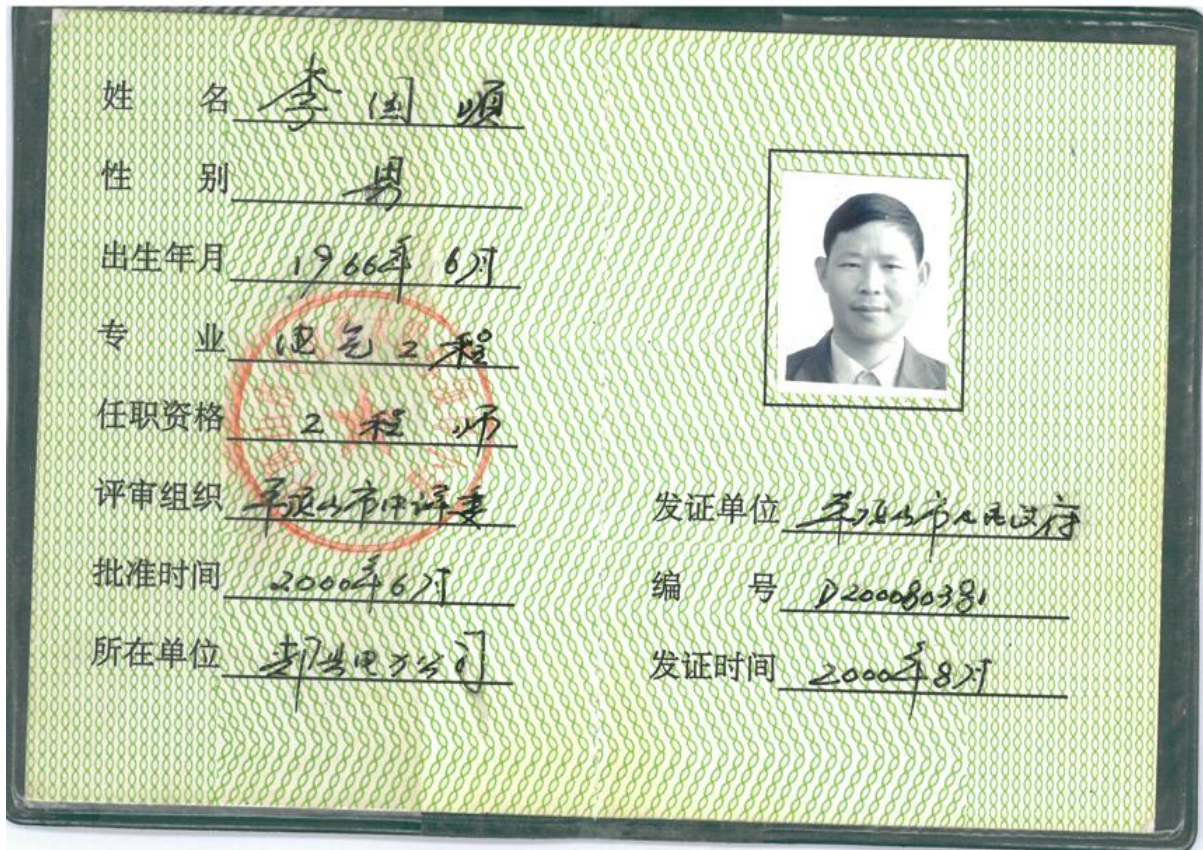 姓名 李国顺
性别 男
出生年月 1966年6月
专业 电气工程
任职资格 工程师
评审组织 平顶山市中评委
批准时间 2000年6月
所在单位 郏县电力公司
发证单位 平顶山市人民政府
编号 D200080381
发证时间 2000年8月